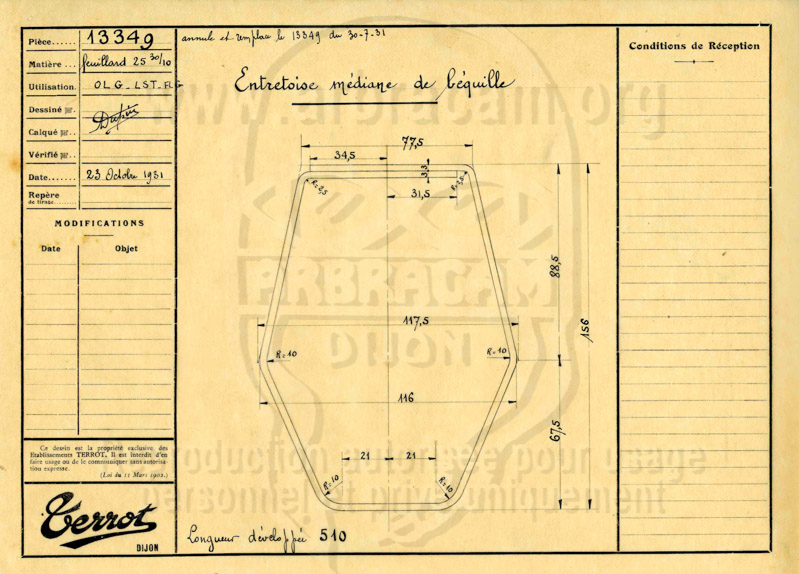 Pièce...... 13349
Matière ... feuillard 25 30/10
Utilisation. OLG_LST_FLG
Dessiné par.
Calqué par..
Vérifié par..
Date....... 23 Octobre 1931
Repère
de tirage.........
MODIFICATIONS
Date Objet
Ce dessin est la propriété exclusive des
Etablissements TERROT. Il est interdit d'en
faire usage ou de le communiquer sans autorisa-
tion expresse.
(Loi du 11 Mars 1902.)
Terrot
DIJON
annule et remplace le 13349 du 30-7-31
Entretoise médiane de béquille
77,5
34,5
3,3
R=2,5
31,5
88,5
117,5
156
R=10
R=10
116
67,5
21
21
R=10
R=10
Longueur développée 510
Conditions de Réception
www.arbracam.org
ARBRACAM
DIJON
reproduction autorisée pour usage
personnel et privé uniquement